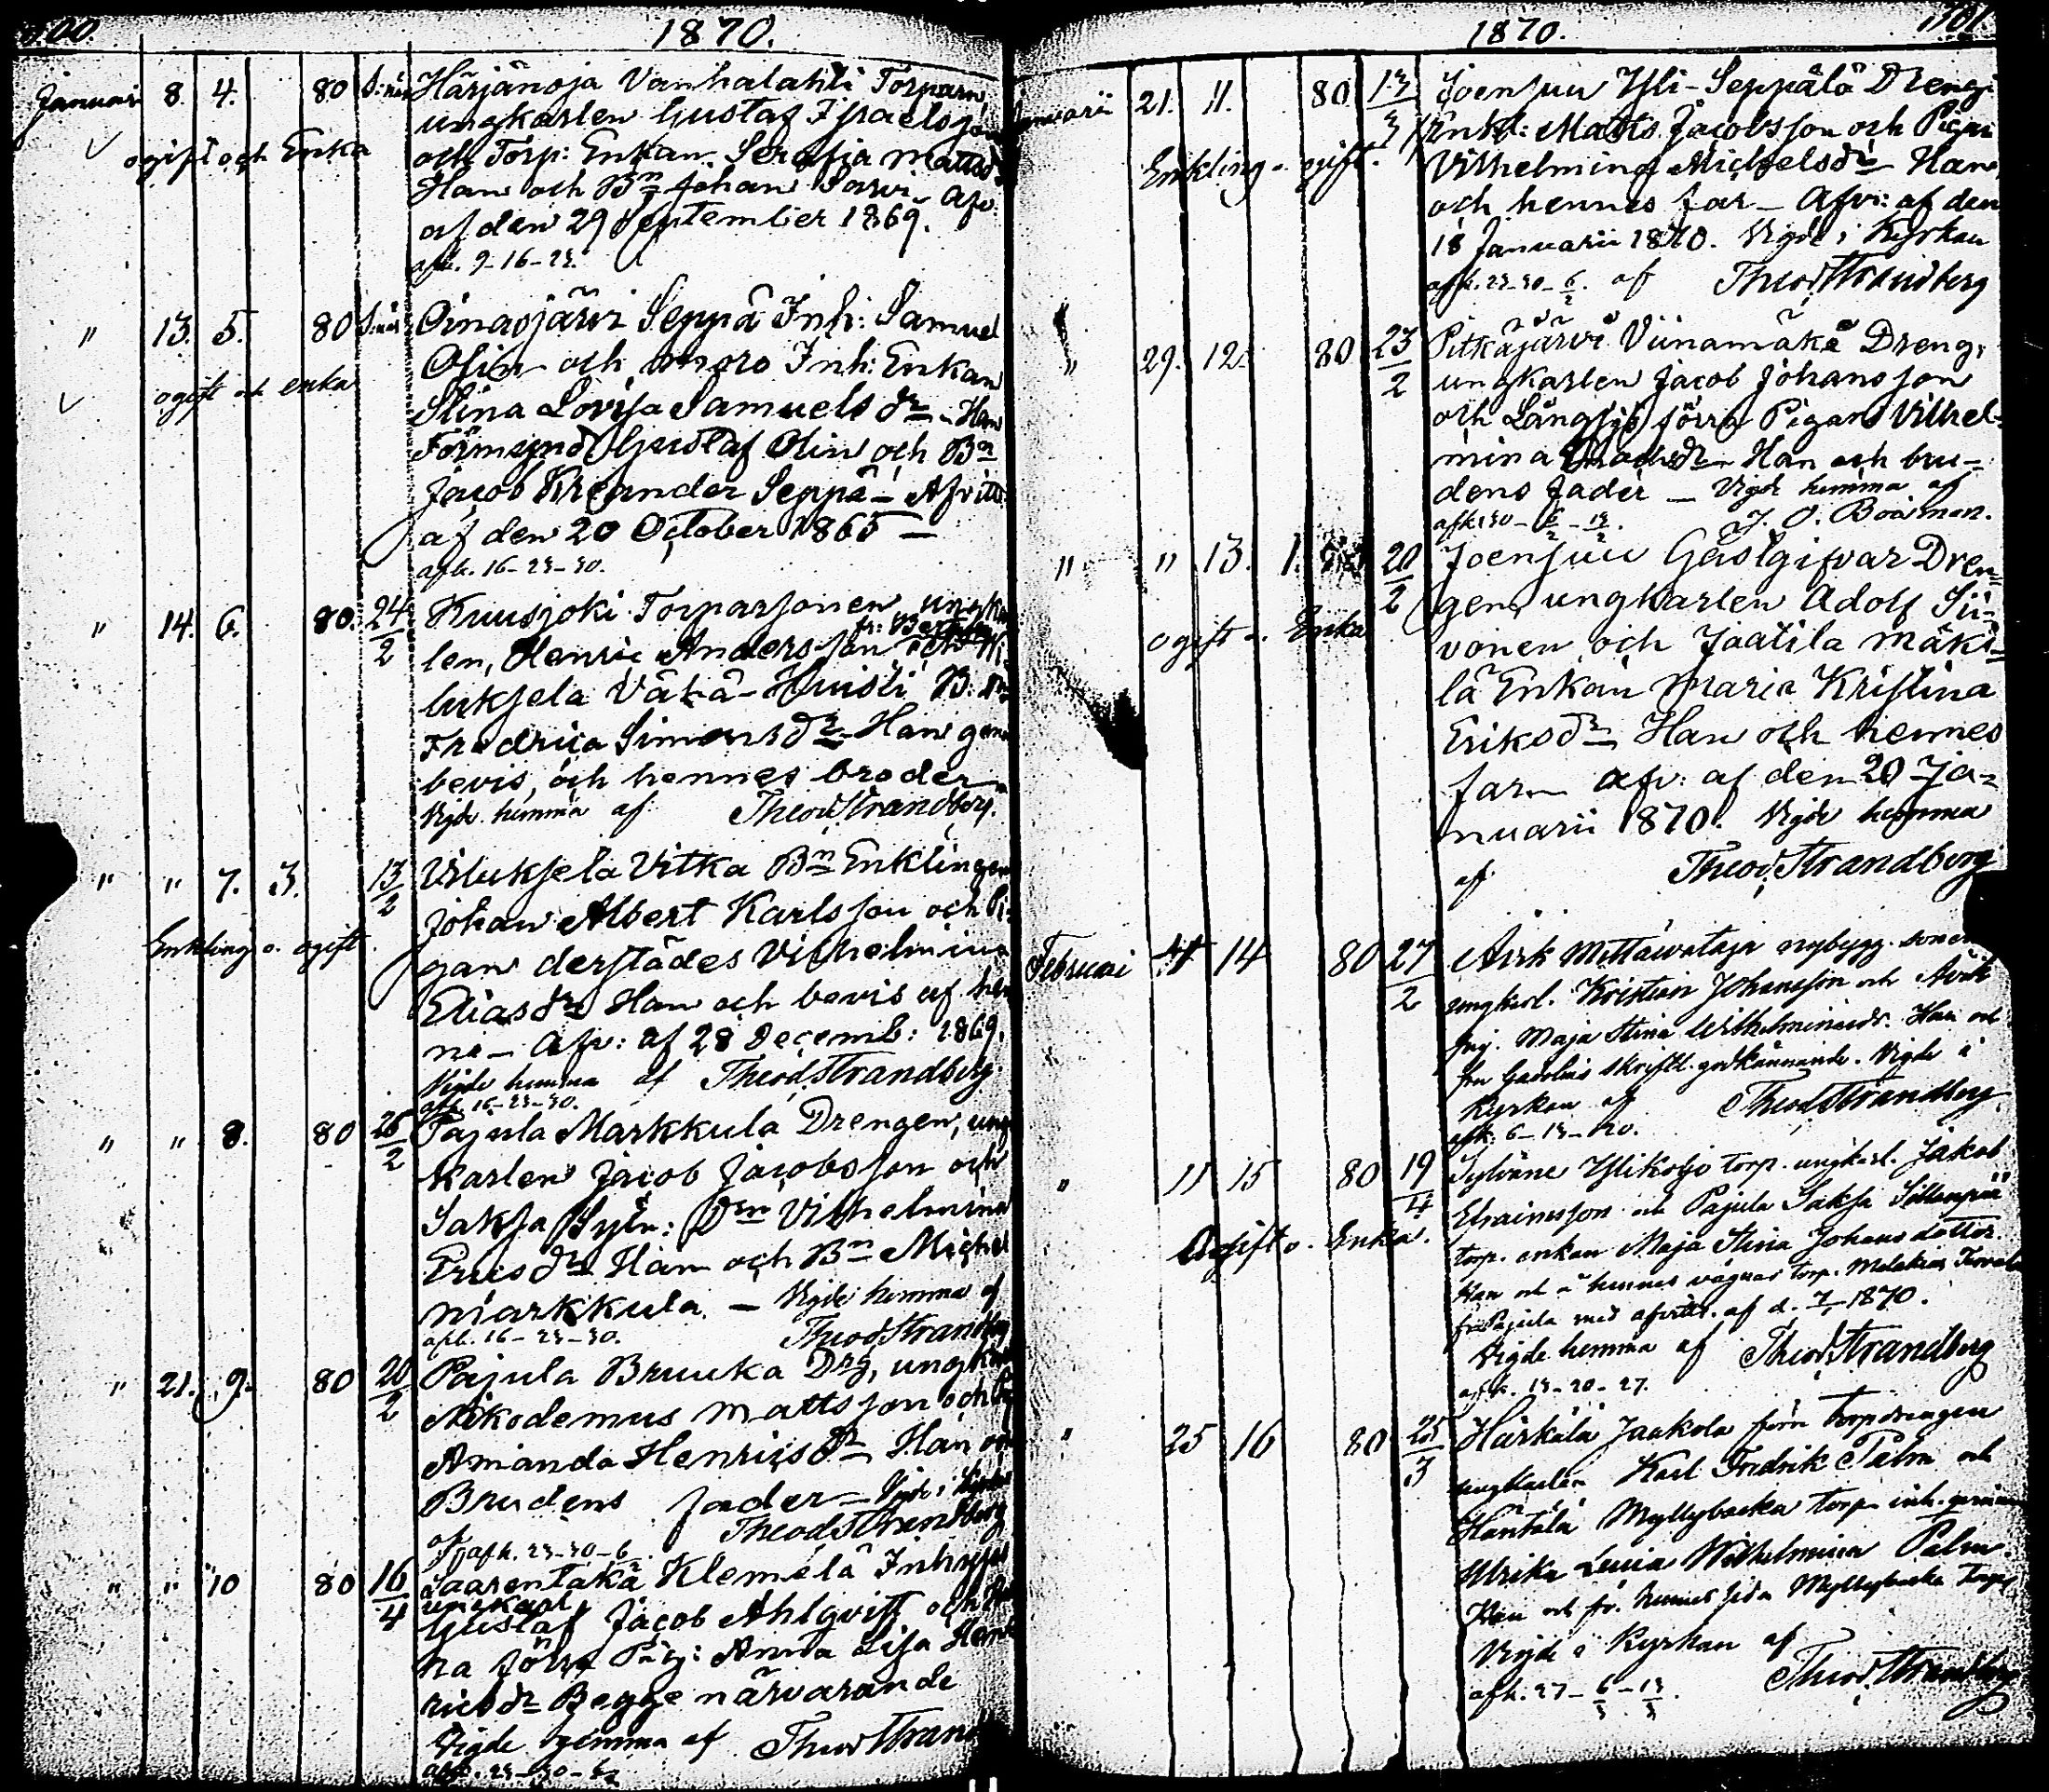 1870.
Januari 8. 4. 80 Härjänoja Vanhalahti Torparn
ungkarlen Gustaf Isaelsson
ogift och Enka
och Torp: Enkan Serafia Mattsd
Han och Bn Johan Sarvi Afv:
af den 29 September 1869.
afk. 9-16-23.
" 13. 5. 80 Oinasjärvi Seppä Inh: Samuel
Olin och Inh: Enkan
ogift och enka
Stina Lovisa Samuelsdr Han
Förmynd Gustaf Olin och Bn
Jacob Seppä - Afvitt
af den 20 October 1865 -
afk. 16-23-30.
" 14. 6. 80. 24/2 Kuusjoki Torparsonen ungkar
len, Henric Andersson och
Vä Huisti B: dr
Fredrica Simonsdr Han genom
bevis, och hennes broder
Vigde hemma af Theod Strandberg.
" " 7. 3. 13/2 Viluksela Vitka Bn Enklingen
Johan Albert Karlsson och Pi-
Enkling o. ogift.
gan derstädes Vilhelmina
Eliasdr Han och bevis af hen
ne - Afv: af 28 Decemb: 1869.
Vigde hemma af Theod Strandberg.
afk. 16-23-30.
" " 8. 80 26/2 Pajula Markkula Drengen, ung
karlen Jacob Jacobsson och
Saksa Sytn: Drn Vilhelmina
Ericsdr Han och Bn Michel
Markkula. - Vigde hemma af
afk. 16-23-30. Theod Strandberg
" 21. 9. 80 20/2 Pajula Bruuka Drg, ungkarl
Nikodemus Mattsson och Pig
Amanda Henricsdr Han och
Brudens fader - Vigde i Kyrkan
af Theod Strandberg
afk. 23-30-6
" " 10 80 16/4 Saarentaka Klemelä Inhyses
ungkarl
Gustaf Jacob Ahlqvist och
na förra Pig: Anna Lisa Hen
ricsdr Begge närvarande
Vigde hemma af Theod Strand
afk. 23-30-6/2
1870. 1101.
Januarii 21. 11. 80 13/3 Joensuu Yli-Seppälä Dreng
Enkl: Matts Jacobsson och Pigan
Enkling o. ogift.
Vilhelmina Michelsdr Han
och hennes far - Afv: af den
18 Januarii 1870. Vigde i Kyrkan
afk. 23-30-6/2. af Theod Strandberg
" 29. 12. 80 23/2 Pitkäjärvi Viinamäkä Dreng,
ungkarlen Jacob Johansson
och Långsjö förra Pigan Vilhel-
mina Han och bru-
dens fader - Vigde hemma af
afk. 30-6/2-13/2. J. O. Boisman.
" " 13. 1. 20/2 Joensuu Gästgifvar Dren-
gen, ungkarlen Adolf Sii-
ogift o. Enka
vonen och Jaatila Mäki-
lä Enkan Maria Kristina
Eriksdr Han och hennes
far - afv: af den 20 Ja-
nuarii 1870. Vigde hemma
af Theod. Strandberg
Februari 14 80 27/2 Avik Mettäwataja nybygg. sonen
ungkarl. Kristian Johansson och Avik
Maja Stina Wilhelminasdr. Han och
fru Gadolins skriftl. godkännande. Vigde i
Kyrkan af Theod Strandberg
afk. 6-13-20.
" 11 15 80 19/4 Sylväne Ylikoljo torp. ungkarl. Jakob
Efraimsson och Pajula Saksa Sillanpää
Ogift o. Enka.
torp. enkan Maja Stina Johans dotter.
Han och å hennes vägnar torp. Melakias
fr. Pajula med afvittr. af d. 1870.
Vigde hemma af Theod. Strandberg
afk. 13-20-27.
" 25 16 80 25/3 Härkälä Jaakola förra torpdrengen
ungkarlen Karl Fredrik Palm och
Häntälä Myllybacka torp. inh.
Ulrika Lovisa Wilhelmina Palm.
Han och för hennes sida Myllybacka
Vigde i Kyrkan af
afk. 27-6/3-13/3. Theod. Strandberg